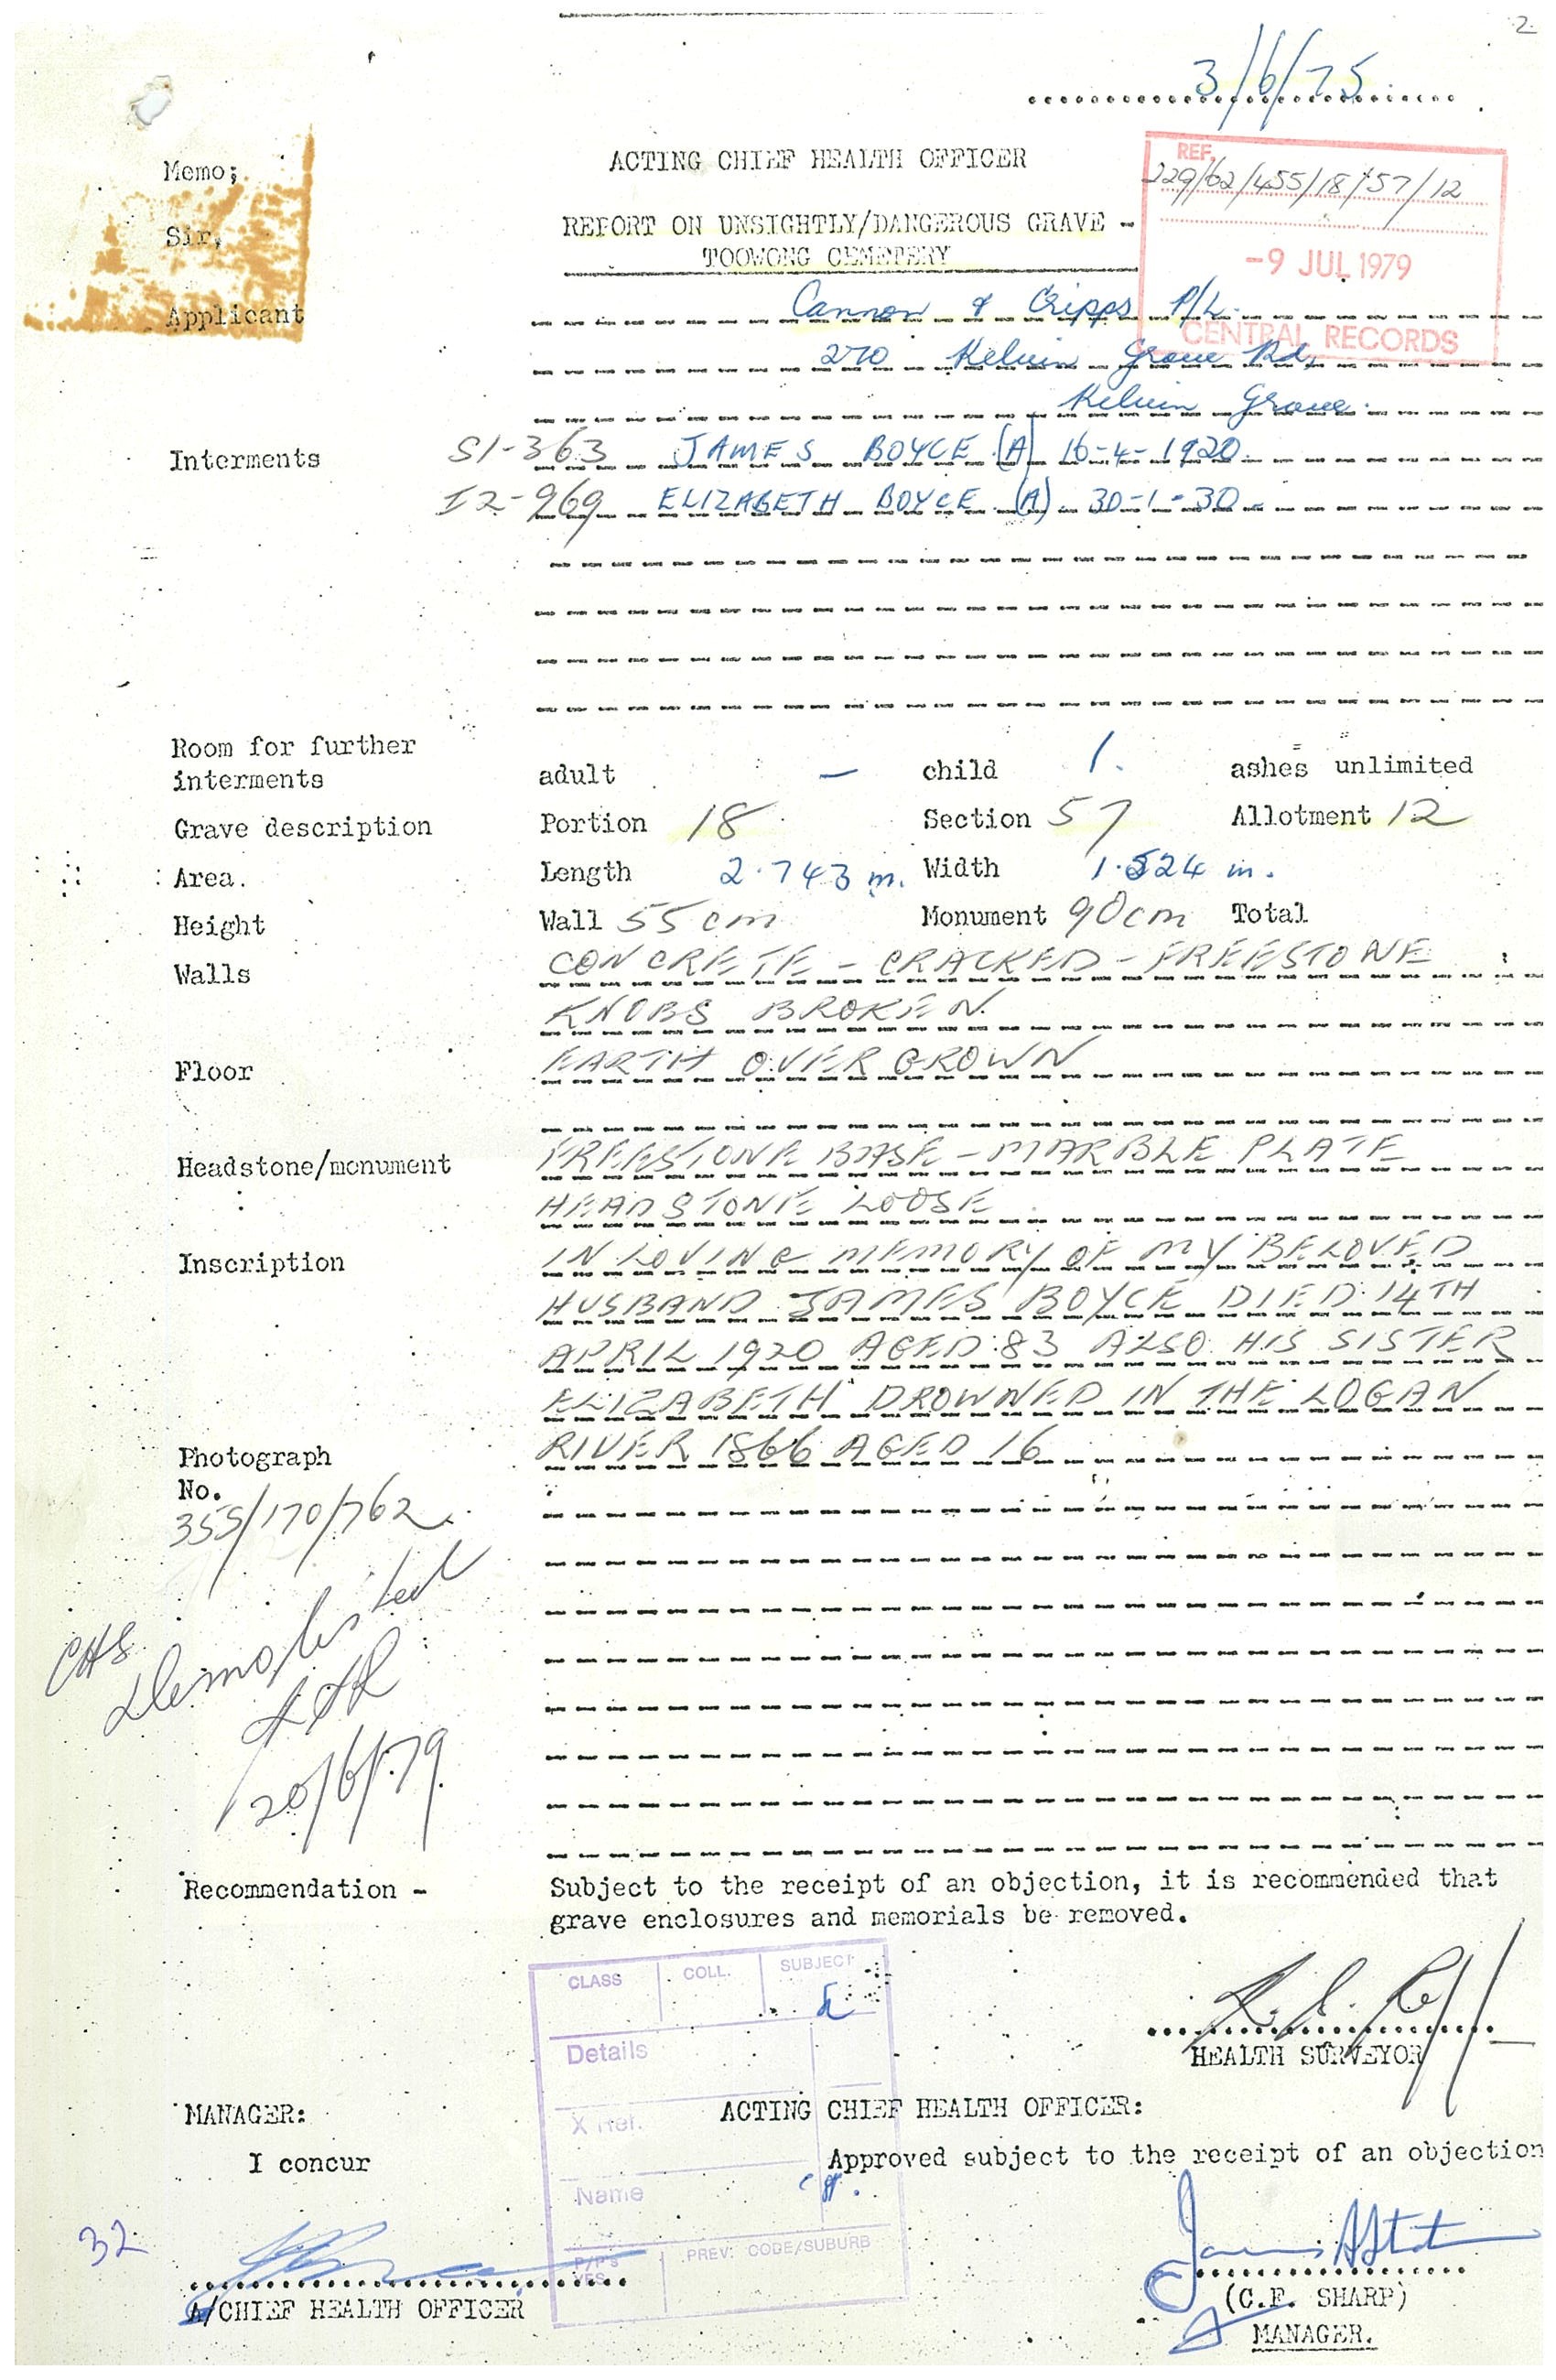 2
3/6/75
Memo;
ACTING CHIEF HEALTH OFFICER
REF.
229/62/455/18/57/12
Sir,
REPORT ON UNSIGHTLY/DANGEROUS GRAVE -
TOOWONG CEMETERY
-9 JUL 1979
CENTRAL RECORDS
Applicant Cannon & Cripps P/L.
270 Kelvin Grove Rd,
Kelvin Grove.
Interments S1-363 JAMES BOYCE (A) 16-4-1920.
I2-969 ELIZABETH BOYCE (A). 30-1-30.
Room for further
interments adult - child 1. ashes unlimited
Grave description Portion 18 Section 57 Allotment 12
Area. Length 2.743 m. Width 1.524 m.
Height Wall 55 cm Monument 90cm Total
Walls CONCRETE - CRACKED - FREESTONE
KNOBS BROKEN.
Floor EARTH OVERGROWN
Headstone/monument FREESTONE BASE - MARBLE PLATE
HEADSTONE LOOSE
Inscription IN LOVING MEMORY OF MY BELOVED
HUSBAND JAMES BOYCE DIED 14TH
APRIL 1920 AGED 83 ALSO HIS SISTER
ELIZABETH DROWNED IN THE LOGAN
RIVER 1866 AGED 16
Photograph
No.
355/170/762
CHS
Demolished
20/6/79
Recommendation - Subject to the receipt of an objection, it is recommended that
grave enclosures and memorials be removed.
CLASS COLL. SUBJECT
Details
HEALTH SURVEYOR
MANAGER: ACTING CHIEF HEALTH OFFICER:
X Ref.
I concur Approved subject to the receipt of an objection
Name
32
P/P's
YES
PREV. CODE/SUBURB
A/CHIEF HEALTH OFFICER
(C.F. SHARP)
MANAGER.